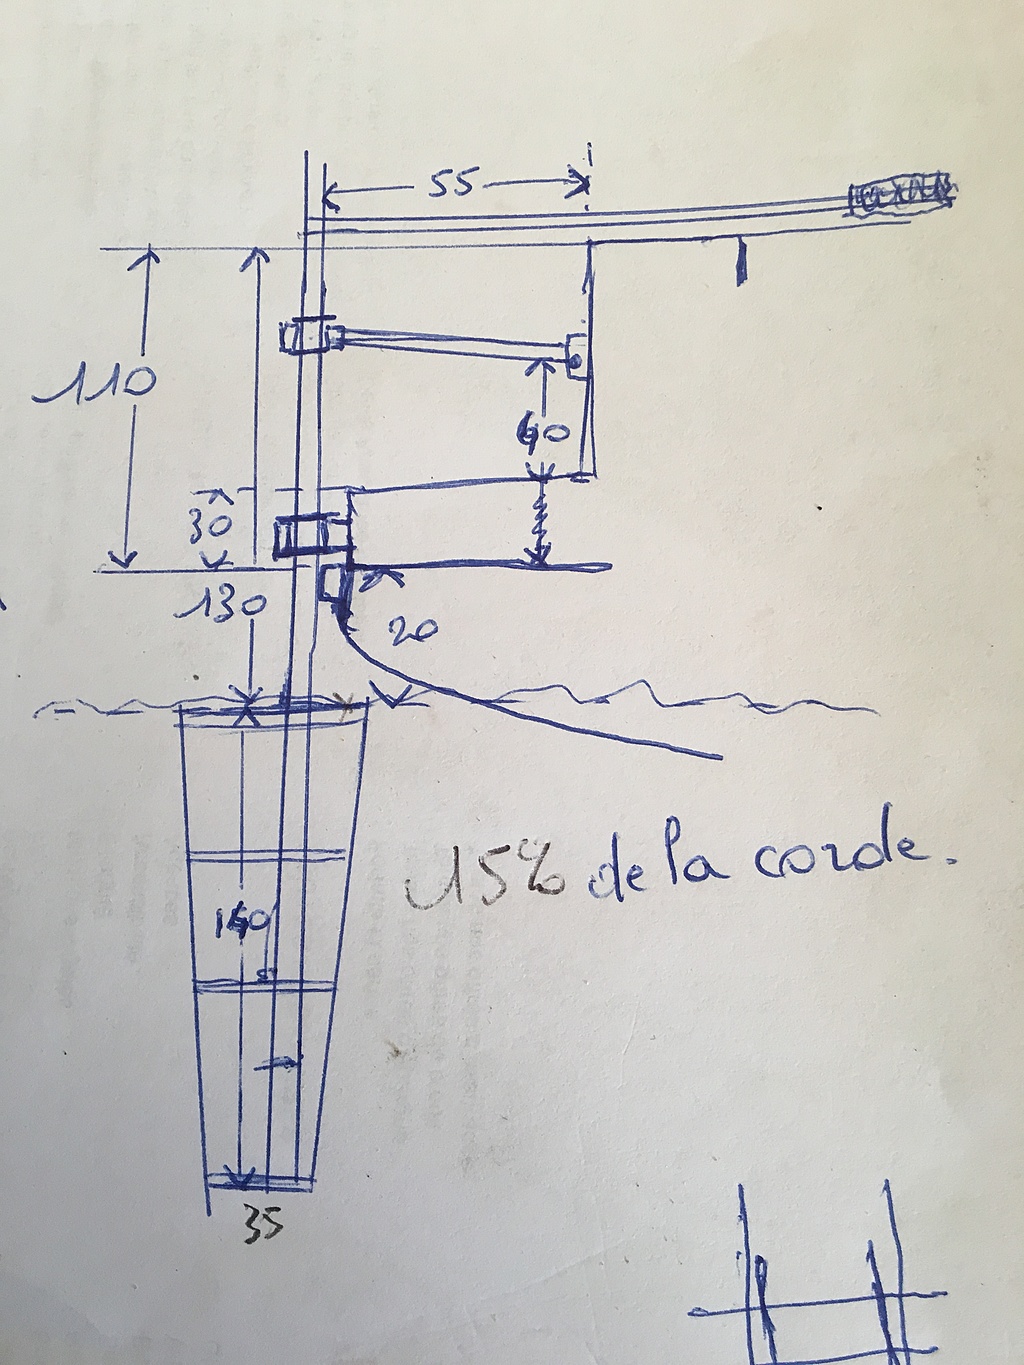 55
110
30
130
20
15% de la corde.
35